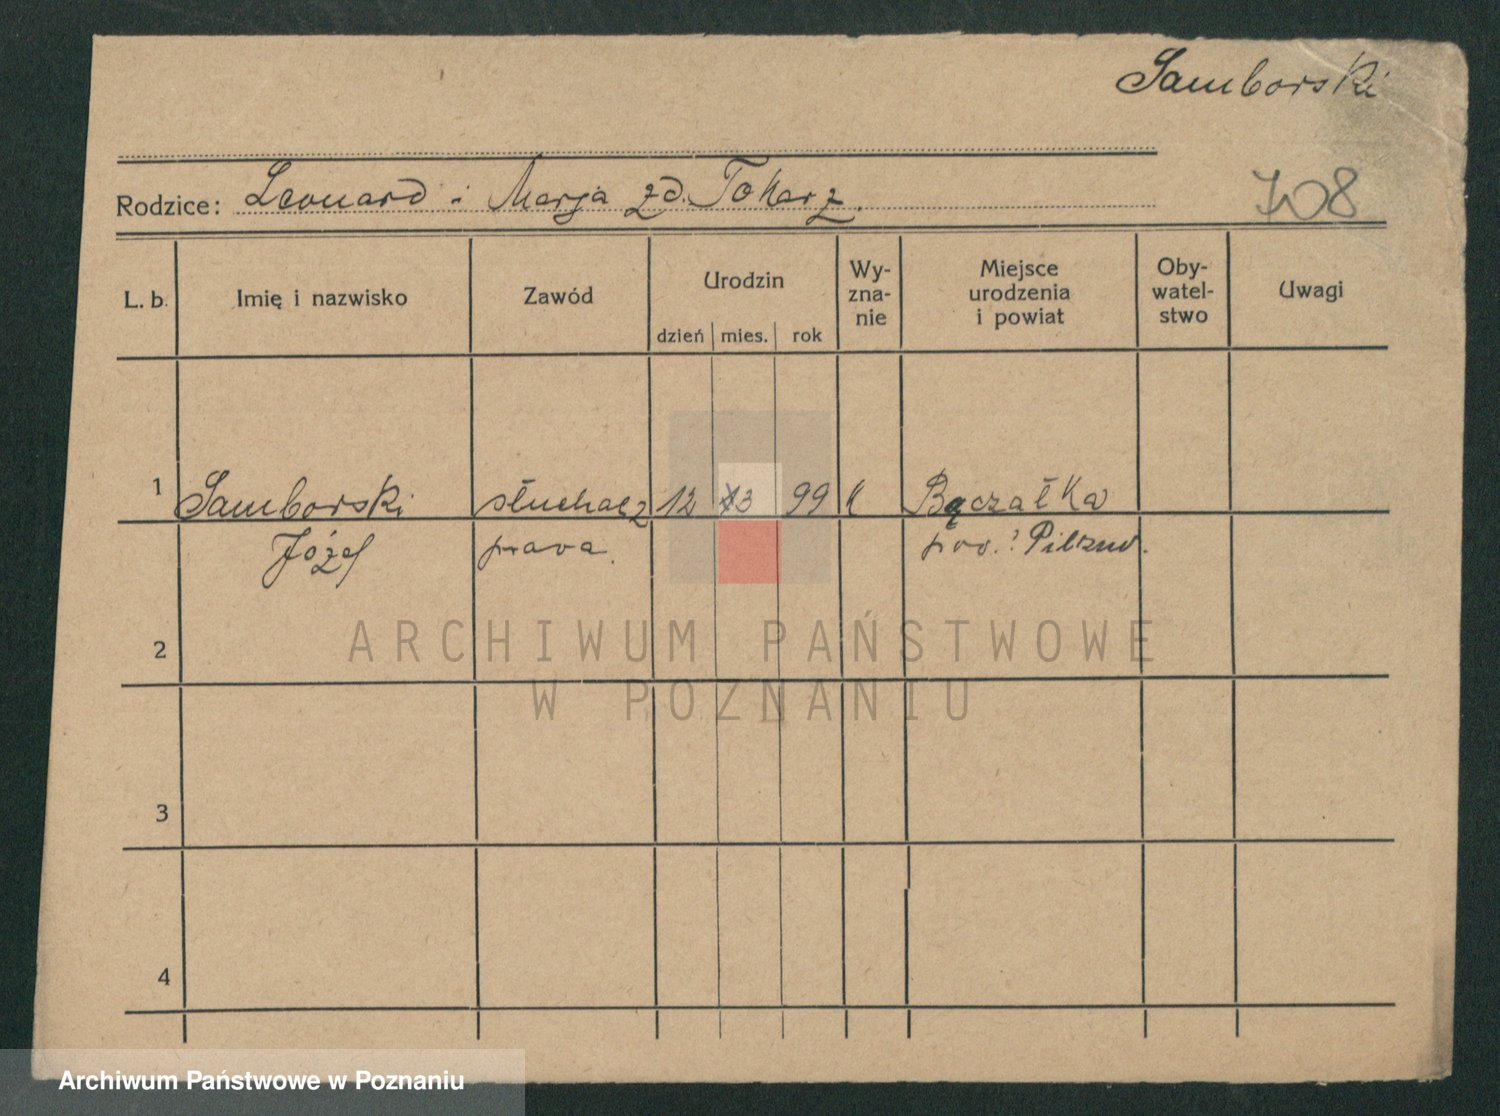 Samborski
Rodzice: Leonard i Marja zd. Tokarz.
708
L. b. Imię i nazwisko Zawód Urodzin dzień mies. rok Wy-zna-nie Miejsce urodzenia i powiat Oby-watel-stwo Uwagi
1 Samborski słuchacz 12 3 99 k Bączałka
Józef prawa. pow.: Pilzno.
2
ARCHIWUM PAŃSTWOWE
W POZNANIU
3
4
Archiwum Państwowe w Poznaniu